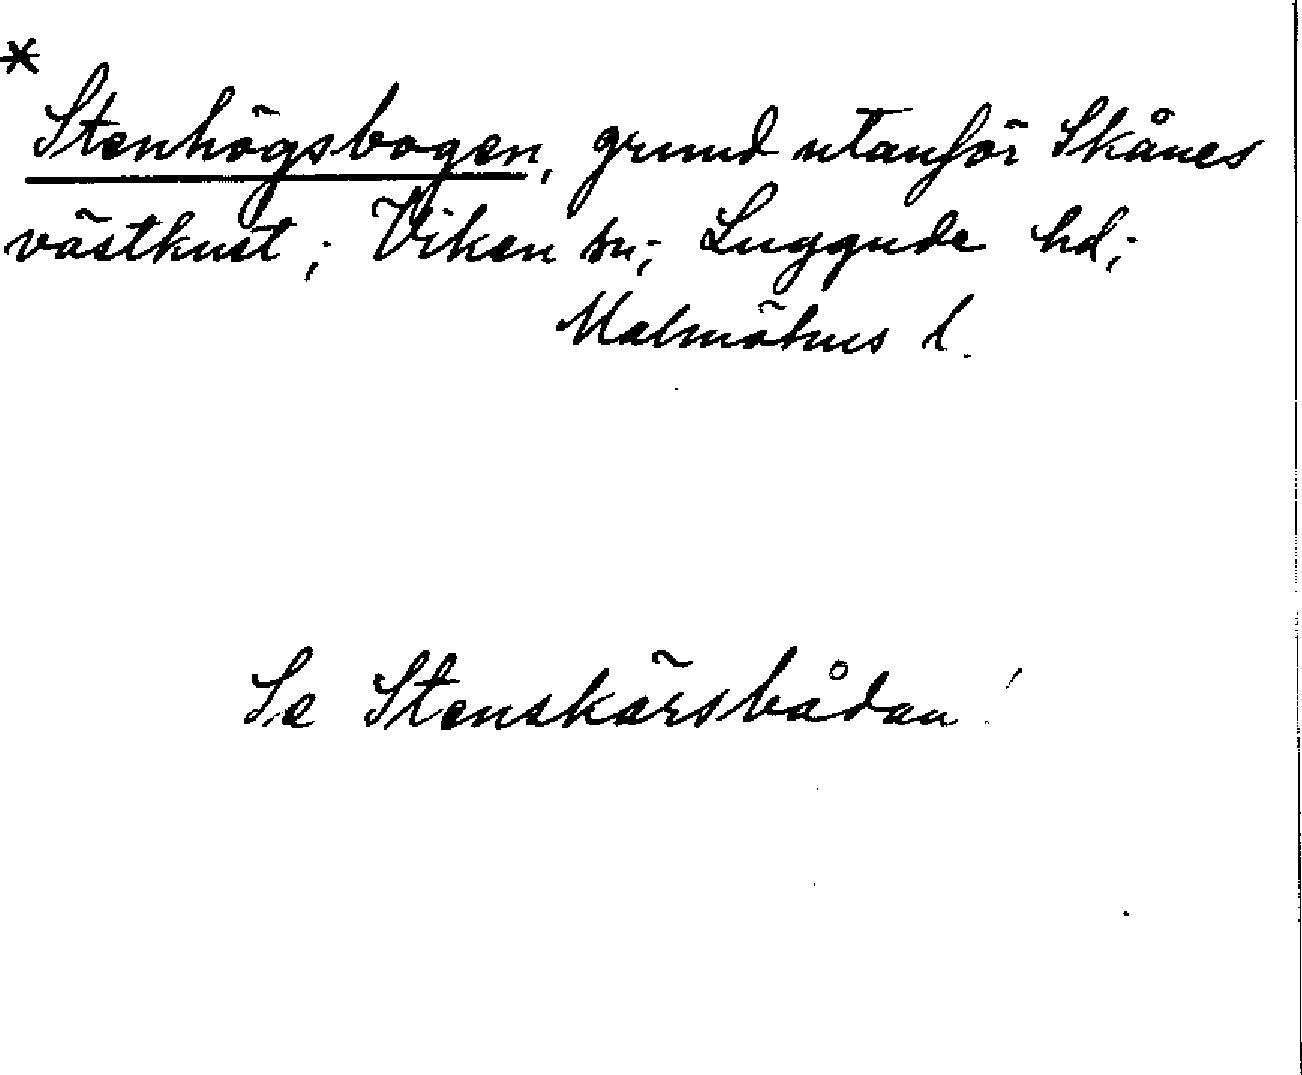 *
Stenhögsbogen, grund utanför Skånes
västkust; Viken sn; Luggude hd;
Malmöhus l.
Se Stenskärsbådan!